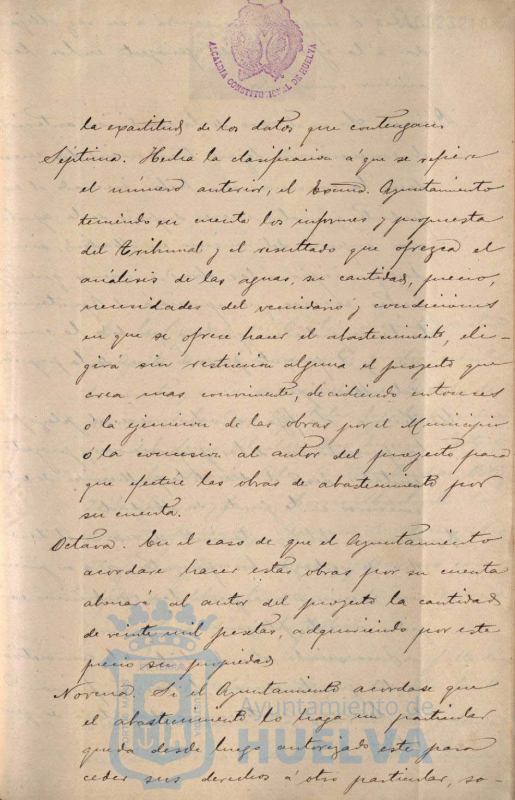 ALCALDIA CONSTITUCIONAL DE HUELVA
la exactitud de los datos que contengan
Septima. Hecha la clasificacion á que se refiere
el número anterior, el Excmo. Ayuntamiento
teniendo en cuenta los informes y propuesta
del Tribunal y el resultado que ofrezca el
análisis de las aguas, su cantidad, precio,
necesidades del vecindario y condiciones
en que se ofrece hacer el abastecimiento, eli-
girá sin restriccion alguna el proyecto que
crea mas conveniente, decidiendo entonces
ó la ejecucion de las obras por el Municipio
ó la concesion al autor del proyecto para
que efectue las obras de abastecimiento por
su cuenta.
Octava. En el caso de que el Ayuntamiento
acordare hacer estas obras por su cuenta
abonará al autor del proyecto la cantidad
de veinte mil pesetas, adquiriendo por este
precio su propiedad
Novena. Si el Ayuntamiento acordase que
el abastecimiento lo haga un particular
queda desde luego autorizado este para
ceder sus derechos á otro particular, so-
Ayuntamiento de
HUELVA